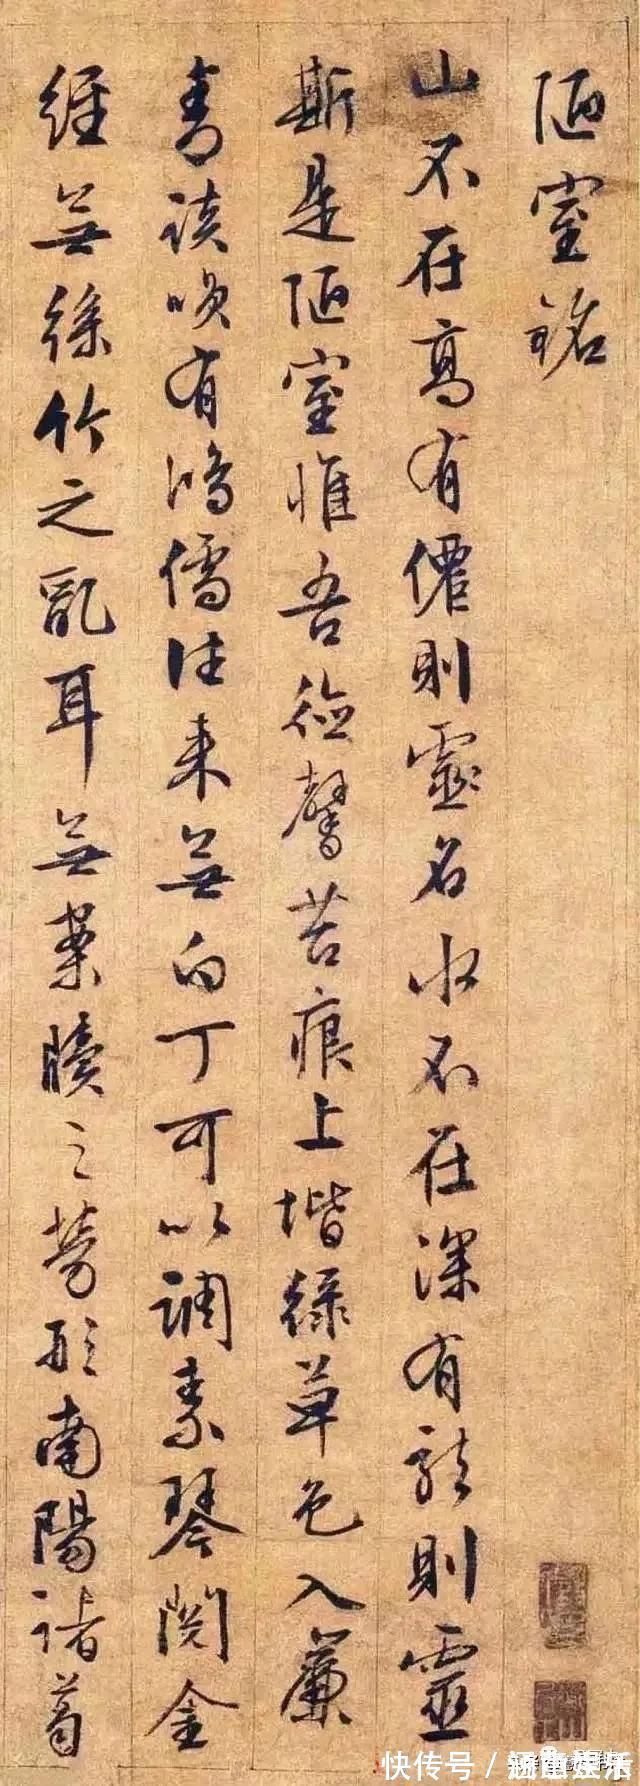 陋室銘
山不在高有僊則靈名水不在深有龍則靈
斯是陋室惟吾德馨苔痕上堦綠草色入簾
青談咲有鴻儒往来無白丁可以調素琴閱金
經無絲竹之亂耳無案牘之勞形南陽諸葛
快传号 / 娱乐